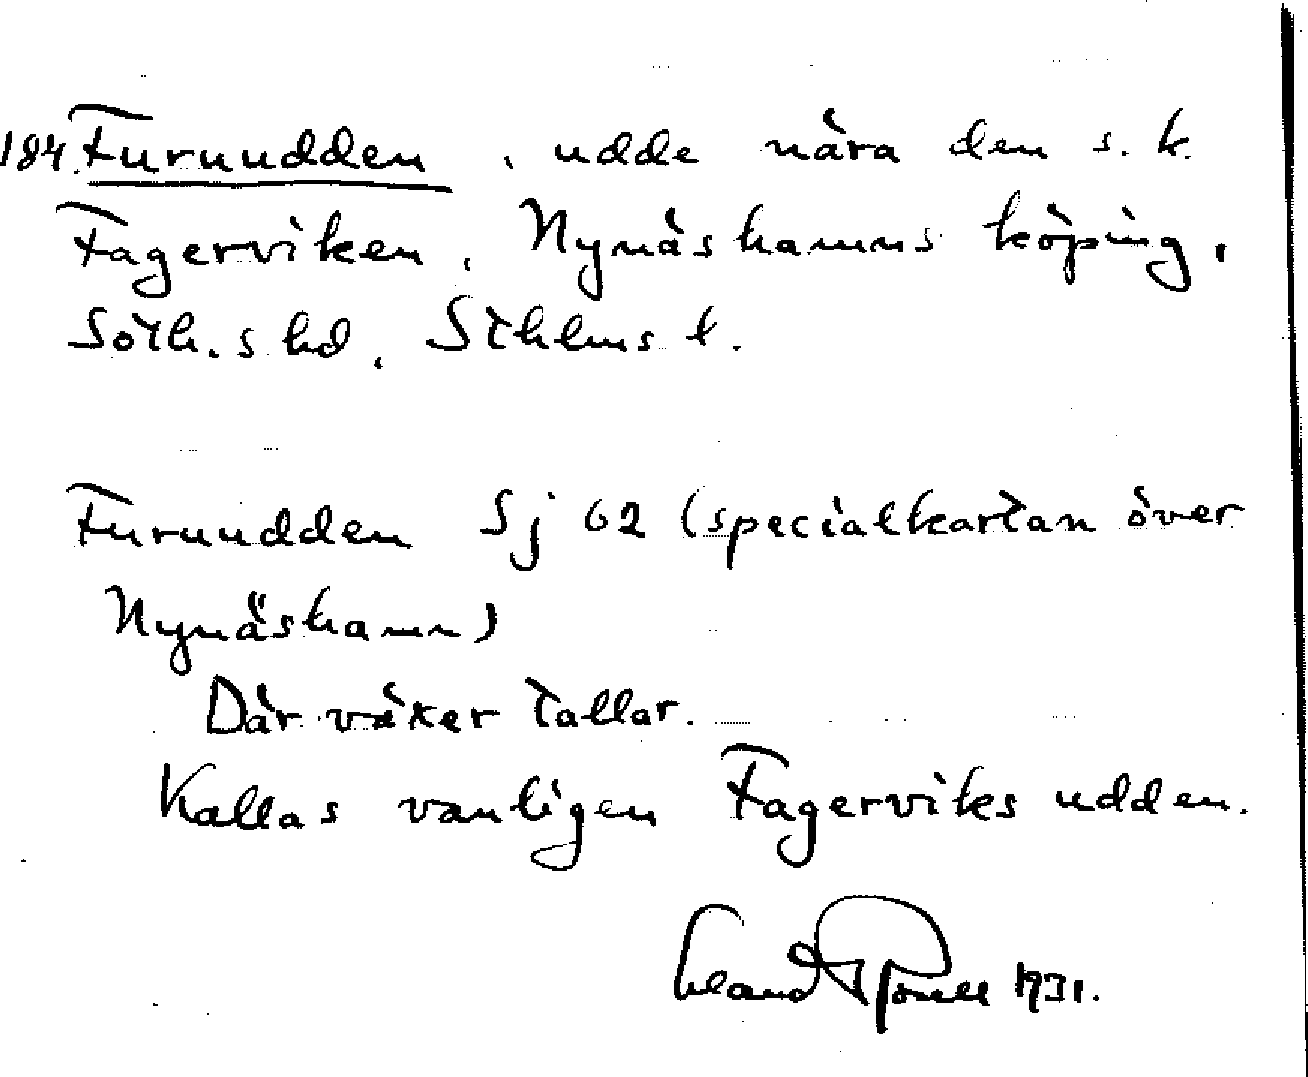 184. Furuudden, udde nära den s. k.
Fagerviken, Nynäshamns köping,
Soth.s hd, Sthlms l.
Furuudden Sj 62 (specialkartan över
Nynäshamn)
Där växer tallar.
Kallas vanligen Fagerviks udden.
1931.